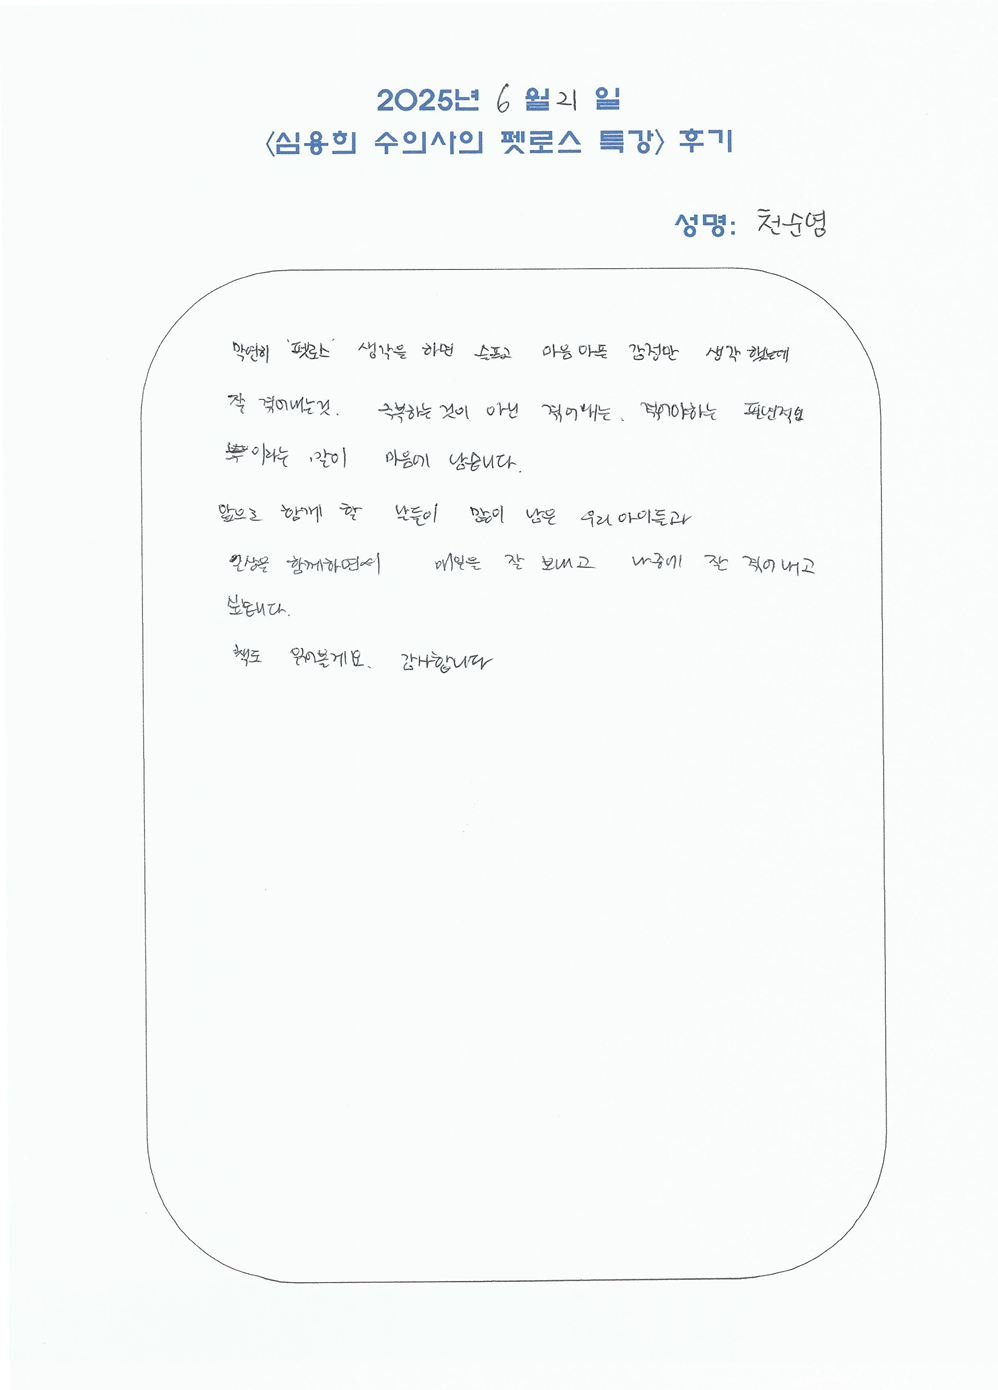 2025년 6 월 21 일
<심용희 수의사의 펫로스 특강> 후기
성명: 천순영
막연히 '펫로스' 생각을 하면 슬프고 마음 아픈 감정만 생각 했는데
잘 겪어내는것. 극복하는 것이 아닌 겪어내는. 겪어야하는
이라는 말이 마음에 남습니다.
앞으로 함께 할 날들이 많이 남은 우리 아이들과
일상을 함께하면서 매일을 잘 보내고 나중에 잘 겪어 내고
봅니다.
책도 읽어볼게요. 감사합니다